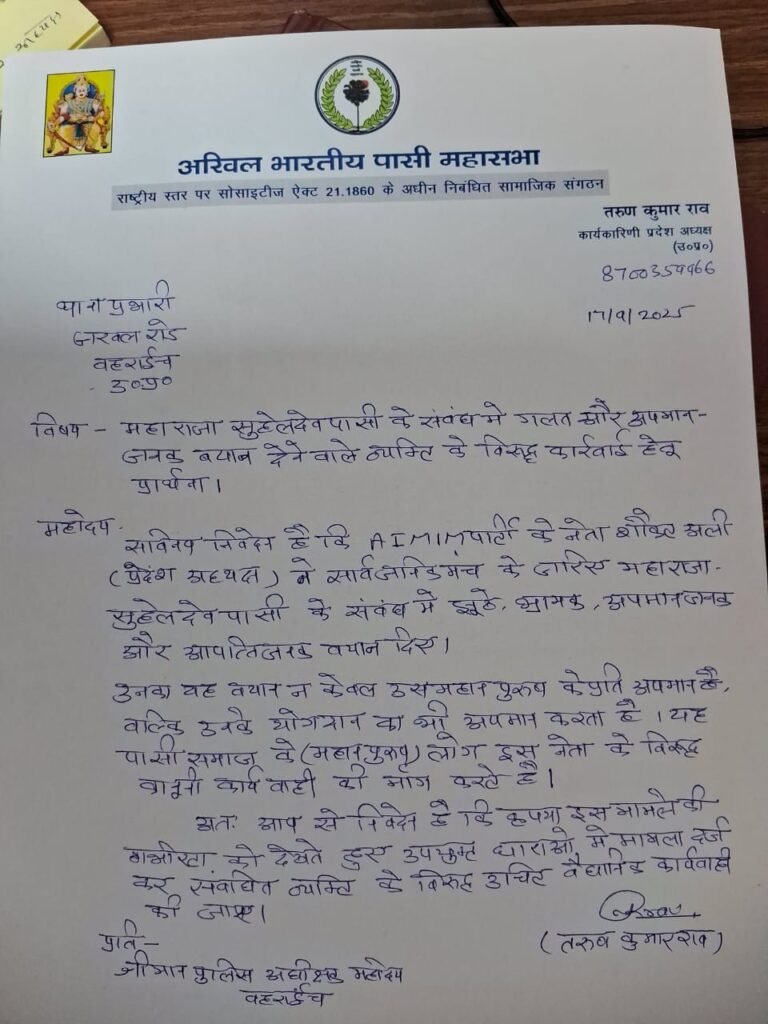 अखिल भारतीय पासी महासभा
राष्ट्रीय स्तर पर सोसाइटीज ऐक्ट 21.1860 के अधीन निबंधित सामाजिक संगठन
तरुण कुमार राव
कार्यकारिणी प्रदेश अध्यक्ष
(उ०प्र०)
17/9/2025
थाना प्रभारी
जरवल रोड
बहराईच
उ०प्र०
विषय - महाराजा सुहेलदेव पासी के संबंध मे गलत और अपमान-
जनक बयान देने वाले व्यक्ति के विरुद्ध कार्रवाई हेतू
प्रार्थना।
महोदय,
सविनय निवेदन है कि AIMIM पार्टी के नेता शौकत अली
(प्रदेश अध्यक्ष) ने सार्वजनिक मंच के जरिए महाराजा-
सुहेलदेव पासी के संबंध मे झूठे, भ्रामक, अपमानजनक
और आपत्तिजनक बयान दिए।
उनका यह बयान न केवल उस महान पुरुष के प्रति अपमान है,
बल्कि उनके योगदान का भी अपमान करता है। यह
पासी समाज के (महान पुरुष) लोग इस नेता के विरुद्ध
कानूनी कार्यवाही की माँग करते है।
अतः आप से निवेदन है कि कृपया इस मामले की
गंभीरता को देखते हुए उपयुक्त धाराओ मे मामला दर्ज
कर संबंधित व्यक्ति के विरुद्ध उचित वैधानिक कार्यवाही
की जाए।
(तरुण कुमार राव)
प्रति-
श्रीमान पुलिस अधीक्षक महोदय
बहराईच